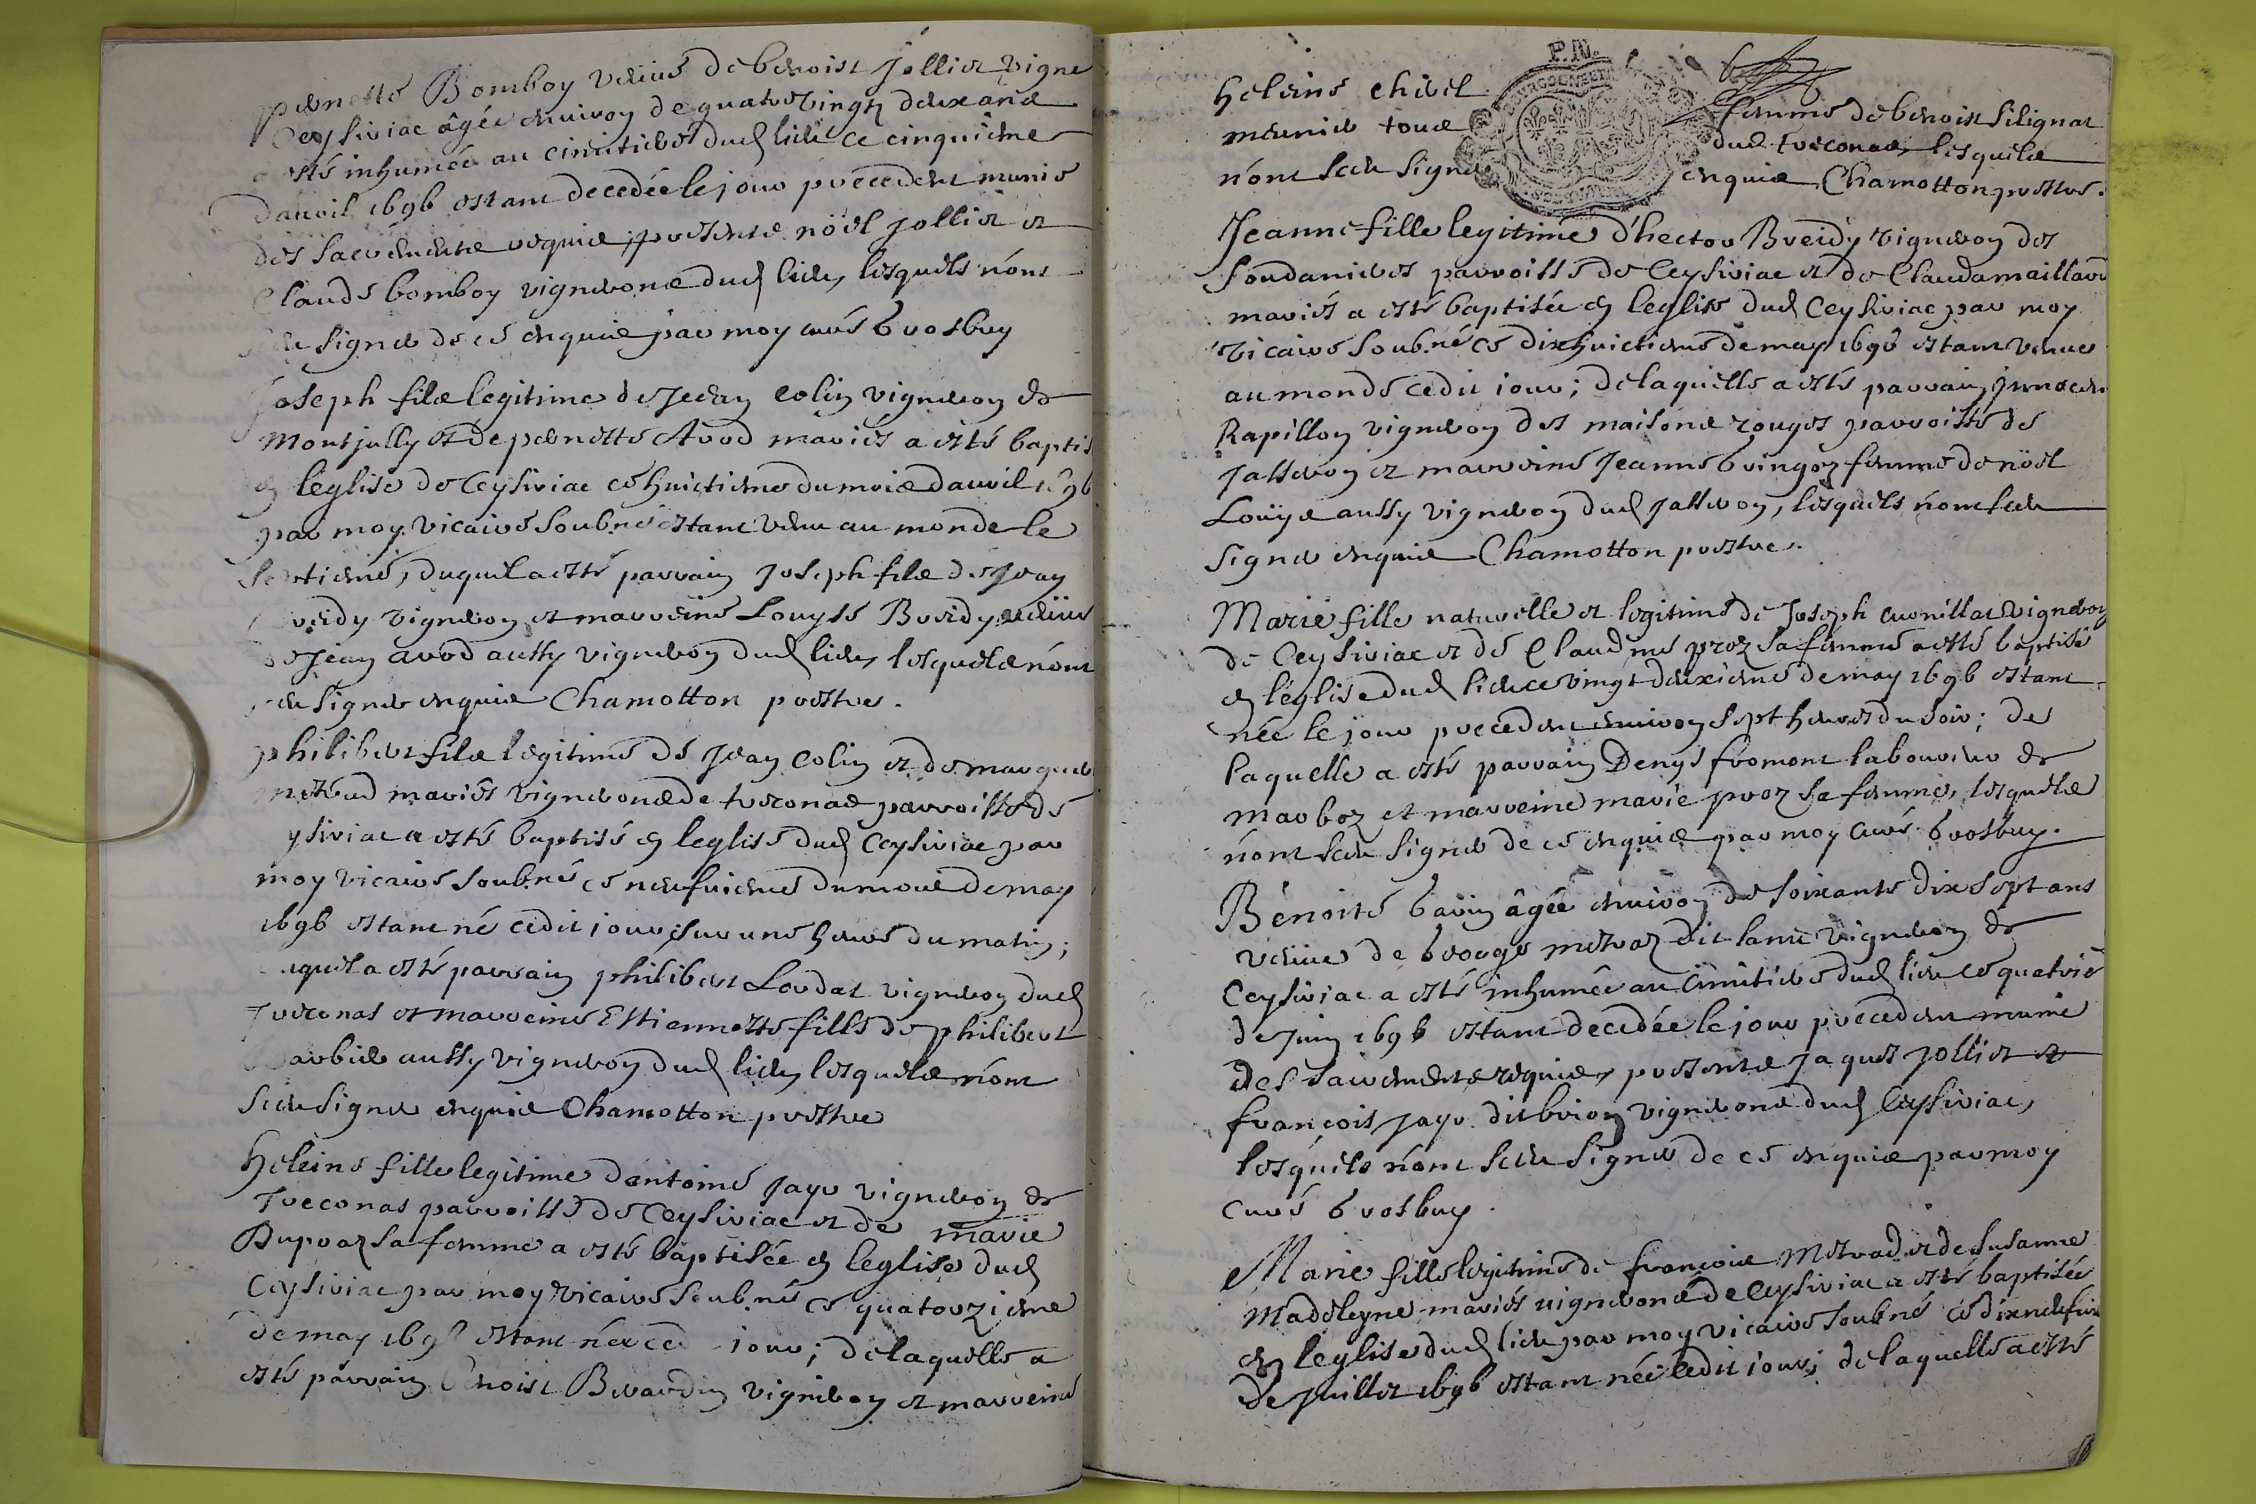 pernette Bomboy veüue de benoist Jollier vigne
Ceysiriac âgée enuiron de quatrevingtz deux ans
a esté inhumée au cimitiere dud lieu ce cinquieme
dauril 1696 estant decedée le jour precedent munie
des sacrements requis, presents noël Jollier et
Claude bomboy vignerons dud lieu, lesquels n'ont
sceu signer de ce enquis par moy curé brosbuy
Joseph fils legitime de Jean Colin vigneron de
montjully et de pernette Avod mariés a esté baptis
en l'eglise de Ceysiriac ce huictieme du mois dauril 1696
par moy vicaire soubné estant venu au monde le
septieme, duquel a esté parrain Joseph fils de Jean
Breidy vigneron et marreine Louyse Breidy veüue
de Jean avod aussy vigneron dud lieu, lesquels n'ont
sceu signer enquis Chamotton prestre.
philibert fils legitime de Jean Colin et de marguer
mariés vignerons de treconas parroisse de
ysiriac a esté baptisé en leglise dud Ceysiriac par
moy vicaire soubné ce neufuieme du mois de may
1696 estant né cedit jour, sur une heure du matin;
uquel a esté parrain philibert Loudat vigneron dud
Treconas et marreine Estiennette fille de philibert
barbier aussy vigneron dud lieu, lesquels n'ont
sceu signer enquis Chamotton prestre
Heleine fille legitime dantoine Jayr vigneron de
Treconas parroisse de Ceysiriac et de marie
Dupraz sa femme a esté baptisée en leglise dud
Ceysiriac par moy vicaire soubné ce quatorzieme
de may 169 estant née ced jour; delaquelle a
esté parrain benoist Berardin vigneron et marreine
P.N.
Heleine chivel femme de benoist silignat
meunier tous dud treconas, lesquels
n'ont sceu signer enquis Chamotton prestre.
Jeanne fille legitime d'hector Breidy vigneron des
soudanieres parroisse de Ceysiriac et de Clauda maillard
mariés a esté baptisée en leglise dud Ceysiriac par moy
vicaire soubné ce dixhuictieme de may 1696 estant venue
au monde cedit jour; de laquelle a esté parrain, Jnnocen
Rapillon vigneron des maisons rouges parroisse de
Jasseron et marreine Jeanne bringoz femme de noël
Loüys aussy vigneron dud Jasseron, lesquels n'ont sceu
signer enquis Chamotton prestre.
Marie fille naturelle et legitime de Joseph cuvrillat vigneron
de Ceysiriac et de Claud me proz sa femme a esté baptisé
en l'eglise dud lieu ce vingt deuxieme de may 1696 estant
née le jour precedent enuiron sept heures du soir; de
laquelle a esté parrain Denys fromont laboureur de
marboz et marreine marie proz sa femme, lesquels
n'ont sceu signer de ce enquis par moy curé brosbuy.
Benoite bavin âgée enuiron de soixante dix sept ans
veüue de george metraz dit lamic vigneron de
Ceysiriac a esté inhumée au cimitiere dud lieu ce quatrie
de Juin 1696 estant decedée le jour precedent munie
des sacrements requis, presents Jaques Jollier et
françois Jayr dit brion vignerons dud Ceysiriac,
lesquels n'ont sceu signer de ce enquis par moy
curé brosbuy.
Marie fille legitime de françois Metrad et de susanne
Maddeleyne mariés uignerons de Ceysiriac a esté baptisée
en leglise dud lieu par moy vicaire soubné ce dixneufui
de Juillet 1696 estant née ledit jour; de laquelle a esté